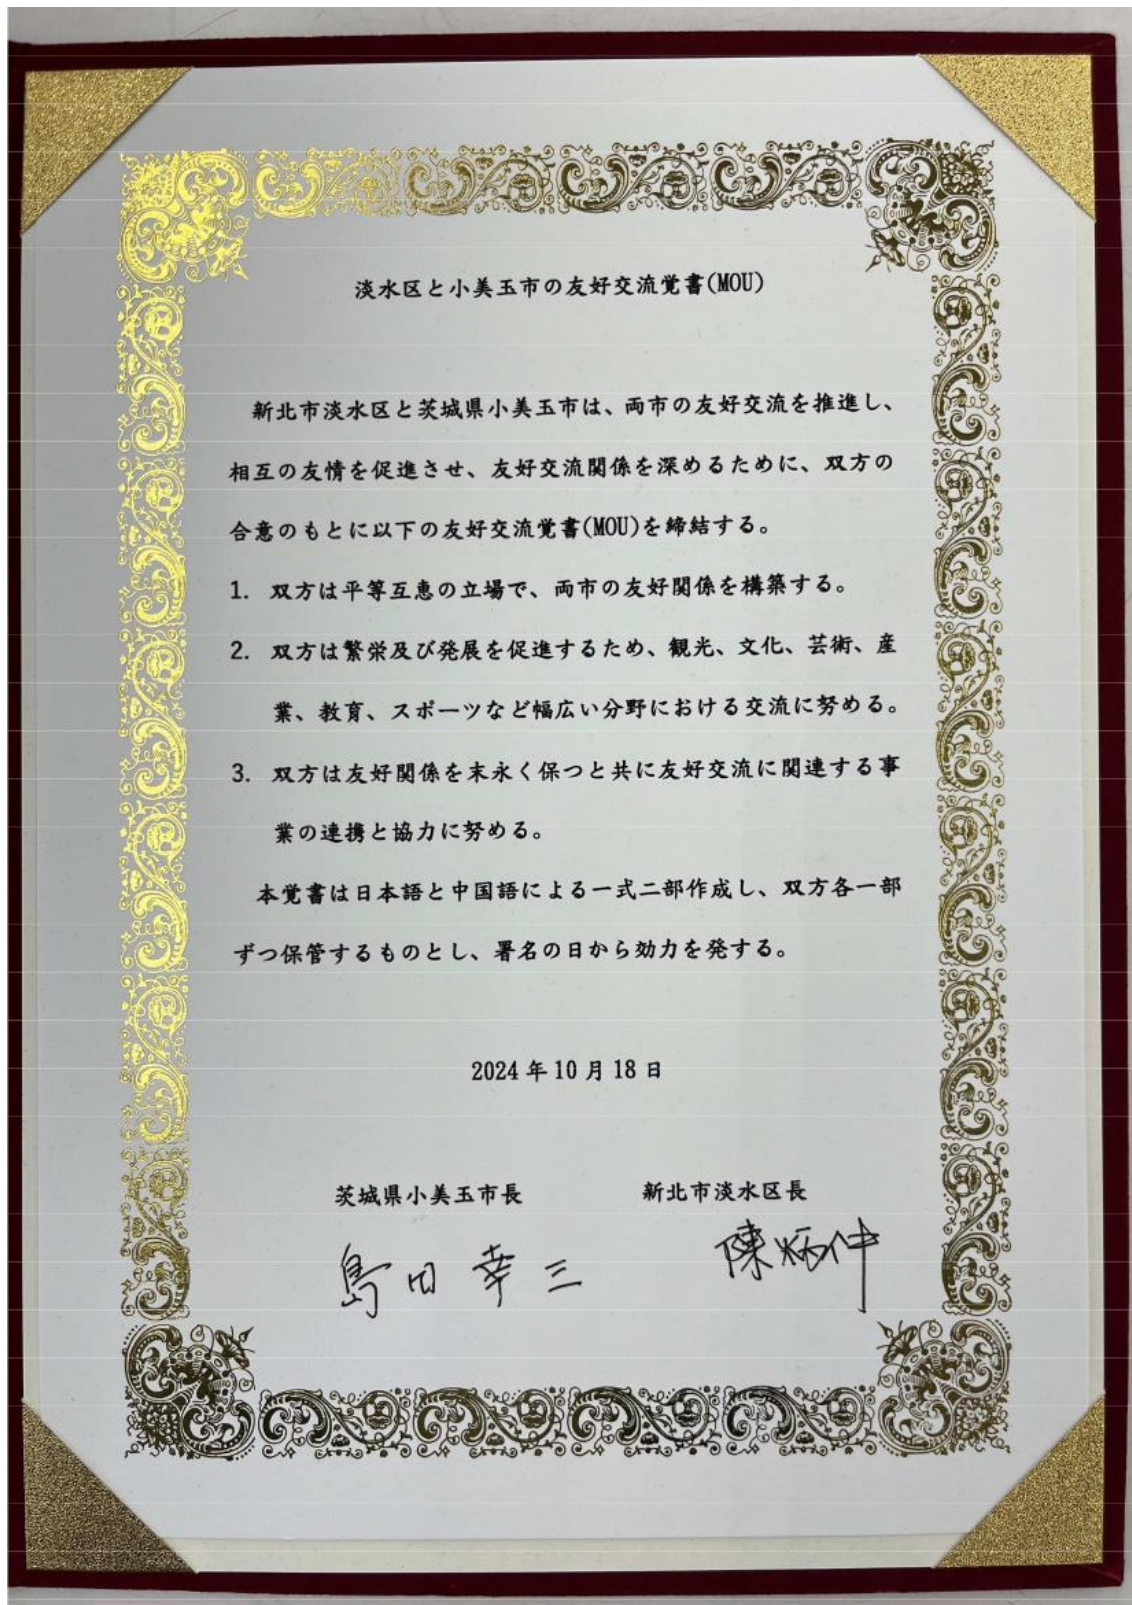 淡水区と小美玉市の友好交流覚書(MOU)
新北市淡水区と茨城県小美玉市は、両市の友好交流を推進し、
相互の友情を促進させ、友好交流関係を深めるために、双方の
合意のもとに以下の友好交流覚書(MOU)を締結する。
1. 双方は平等互恵の立場で、両市の友好関係を構築する。
2. 双方は繁栄及び発展を促進するため、観光、文化、芸術、産
業、教育、スポーツなど幅広い分野における交流に努める。
3. 双方は友好関係を末永く保つと共に友好交流に関連する事
業の連携と協力に努める。
本覚書は日本語と中国語による一式二部作成し、双方各一部
ずつ保管するものとし、署名の日から効力を発する。
2024年10月18日
茨城県小美玉市長 新北市淡水区長
島田幸三 陳炳仲